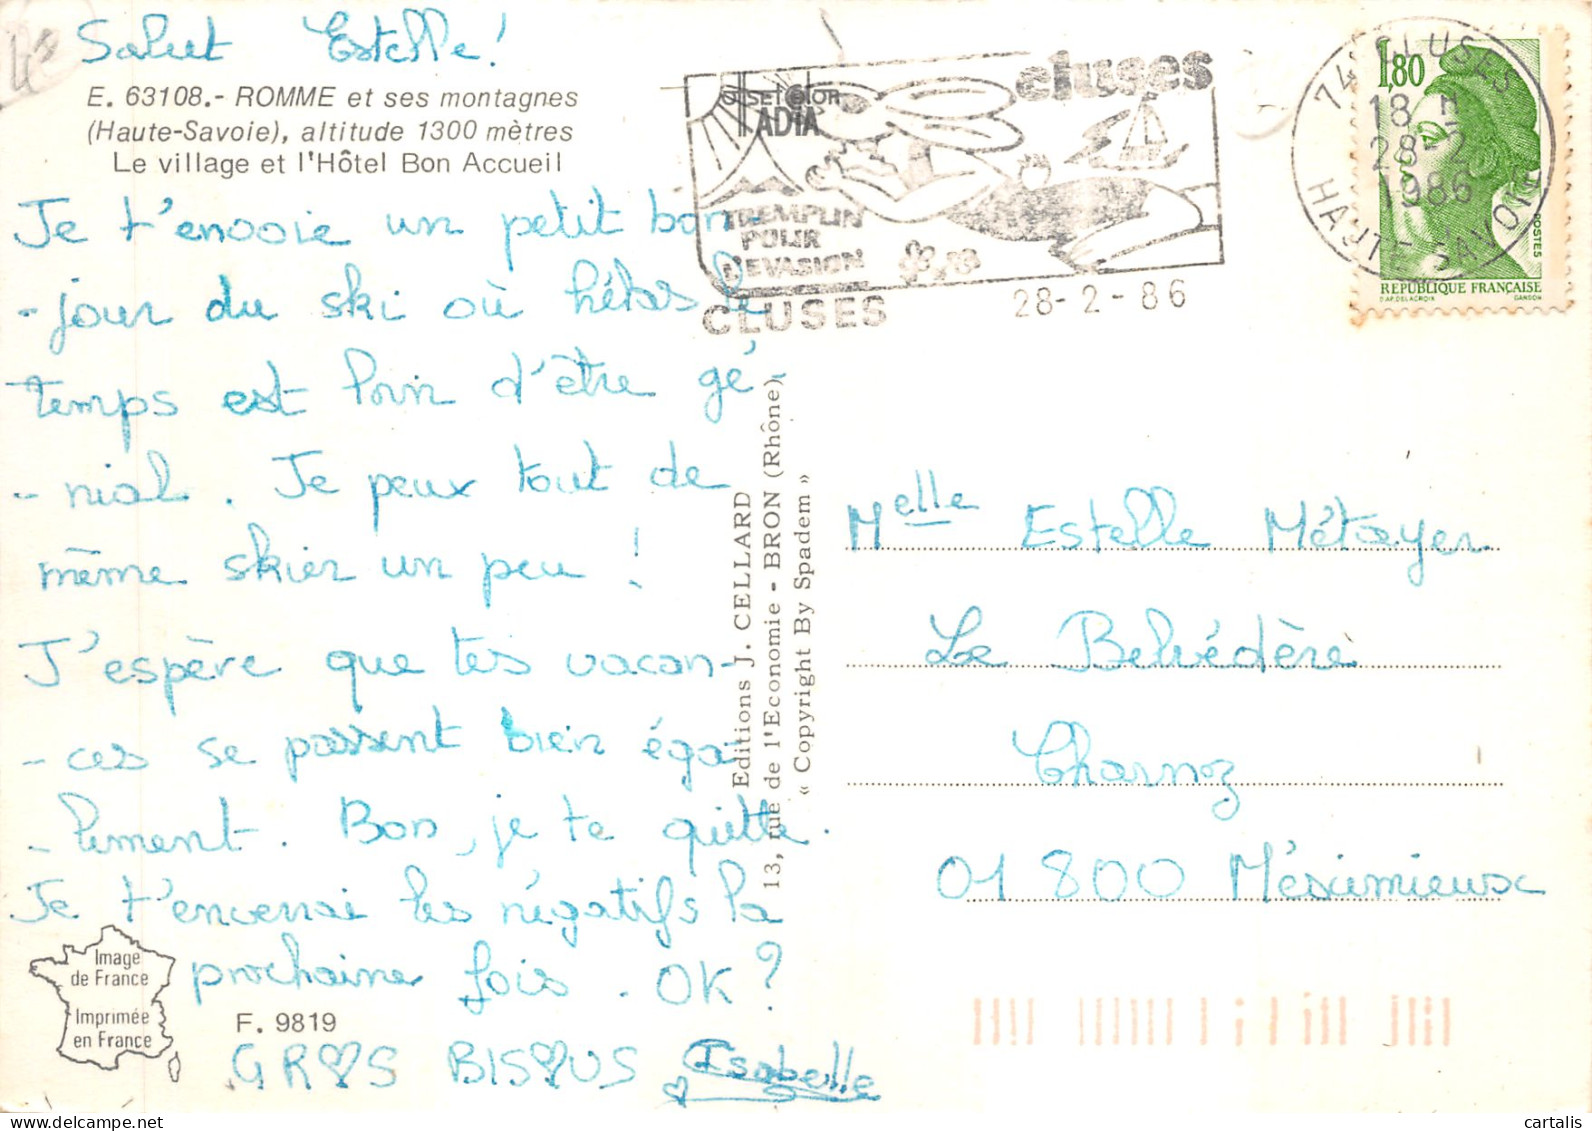 4€
Salut Estelle!
E. 63108.- ROMME et ses montagnes
(Haute-Savoie), altitude 1300 mètres
Le village et l'Hôtel Bon Accueil
Je t'envoie un petit bon
-jour du ski où hélas le
temps est loin d'être gé
-nial. Je peux tout de
même skier un peu !
J'espère que tes vacan-
-ces se passent bien éga
-lement. Bon, je te quitte.
Je t'enverrai les négatifs la
prochaine fois. OK?
GROS BISOUS Isabelle
Image
de France
Imprimée
en France
F. 9819
Editions J. CELLARD
13, rue de l'Economie - BRON (Rhône)
« Copyright By Spadem »
SELECTOR
ADIA
cluses
TREMPLIN
POUR
L'EVASION
CLUSES
28-2-86
74 CLUSES
18 H
28-2
1986
HAUTE-SAVOIE
1,80
POSTES
REPUBLIQUE FRANÇAISE
D'AP. DELACROIX GANDON
Melle Estelle Métayer
Le Belvédère
Charnoz
01 800 Méximieux
cartalis
www.delcampe.net